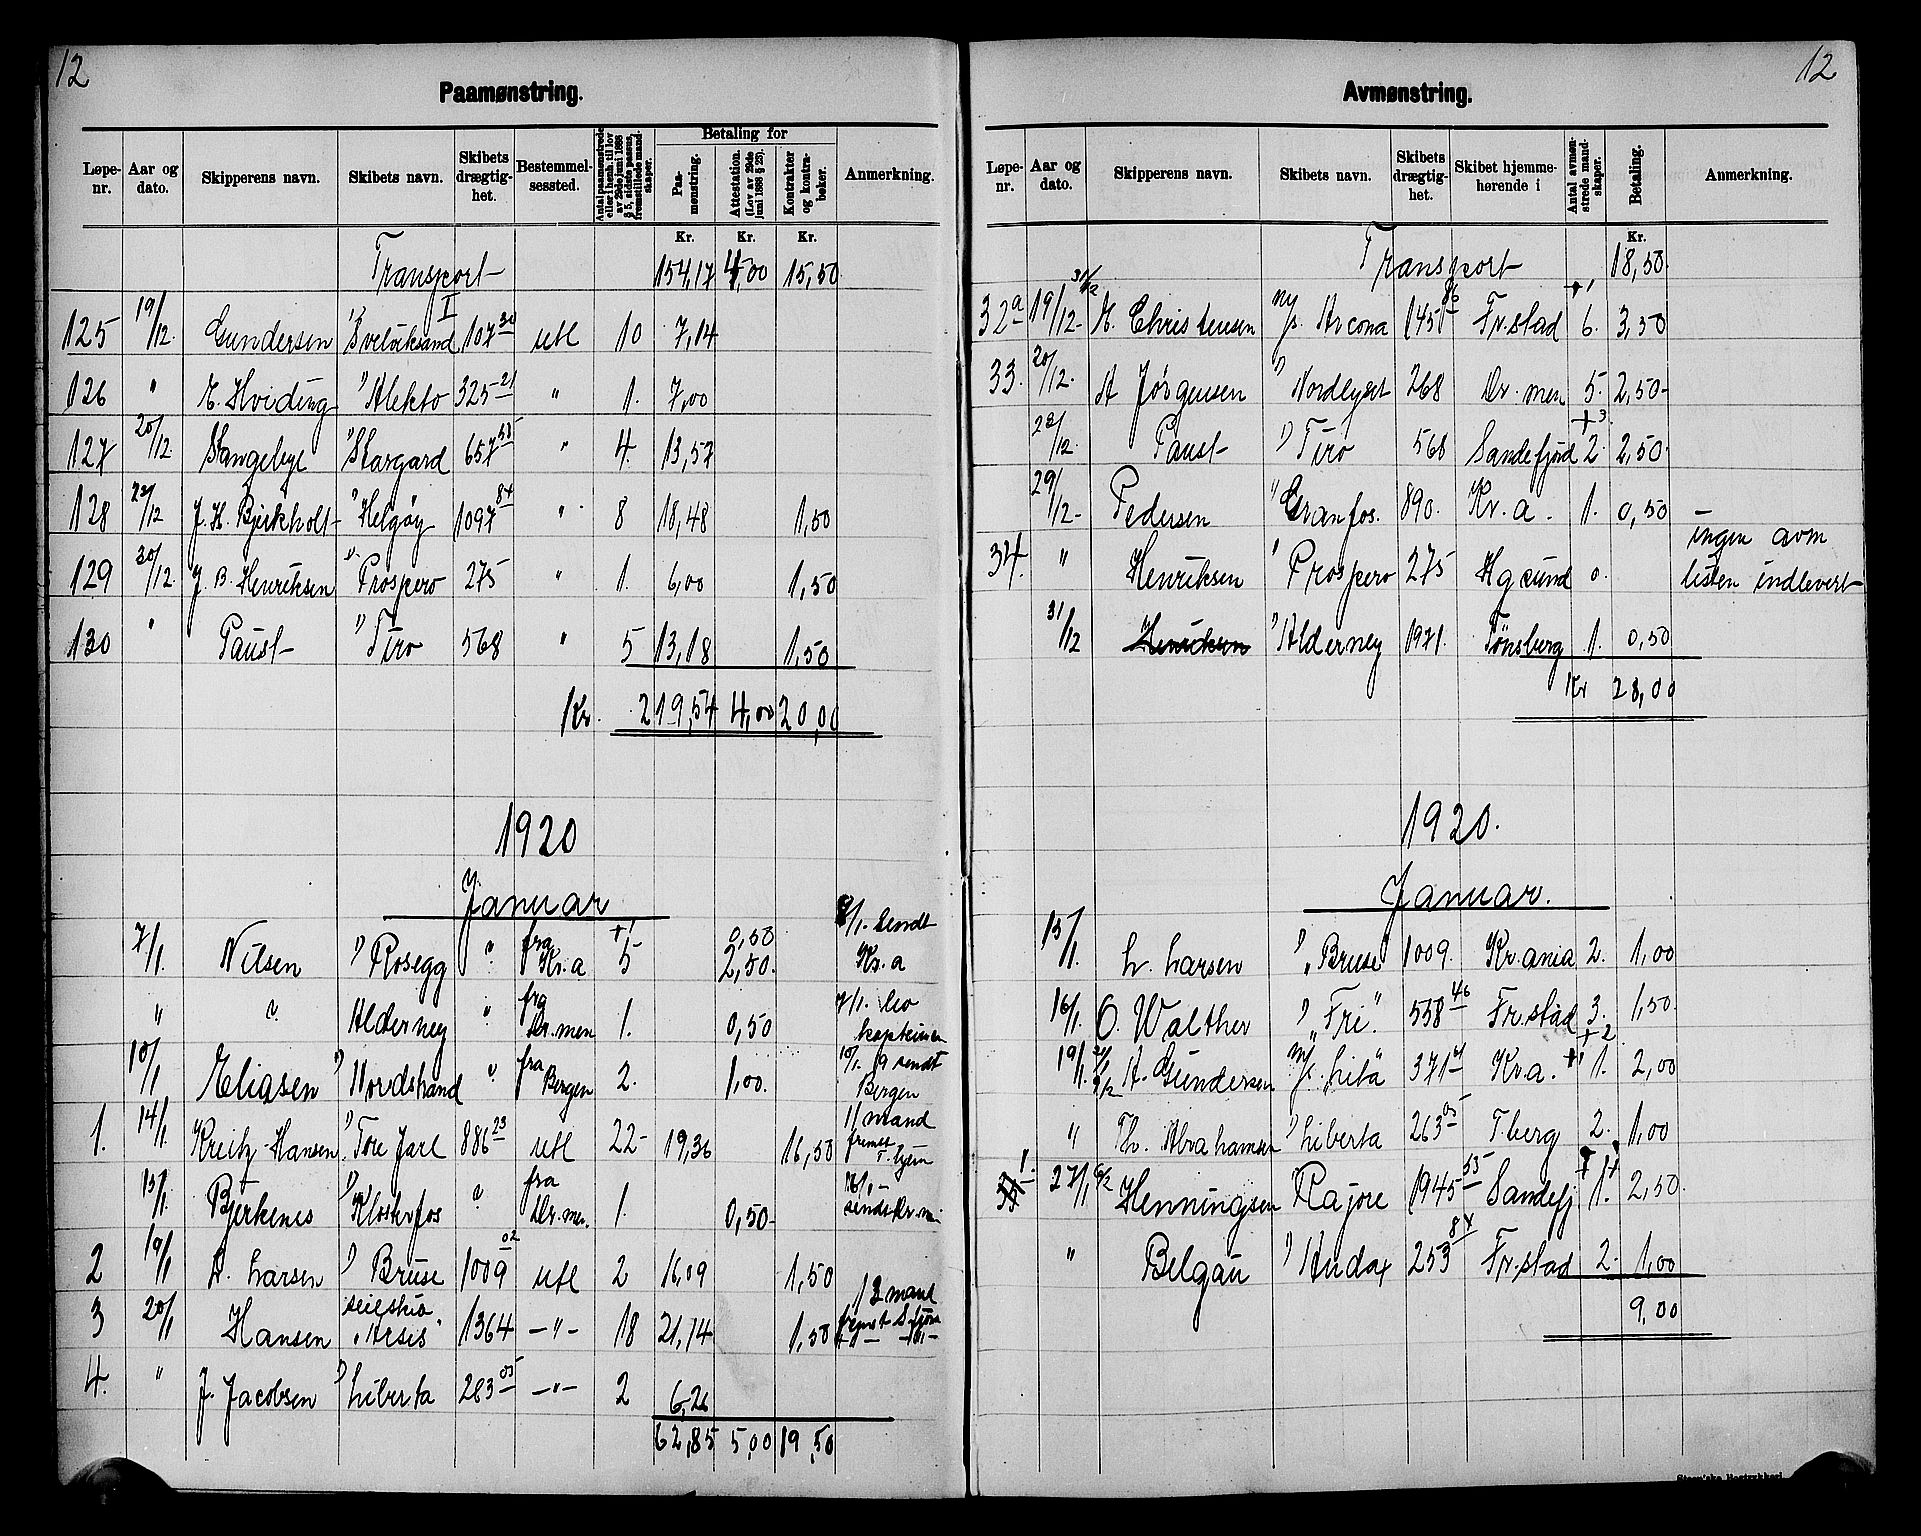 12
Paamønstring.
Løpe-nr. Aar og dato. Skipperens navn. Skibets navn. Skibets drægtighet. Bestemmelsessted. Antal paamønstrede eller i henh. til lov av 29de juni 1888 § 5, sidste passus, fremstillede mandskaper. Betaling for Paamønstring. Attestation. (Lov av 29de juni 1888 § 23). Kontrakter og kontrabøker. Anmerkning.
Kr. Kr. Kr.
Transport 154,17 4,00 15,50
125 19/12. Gundersen Svelviksand II 107 30 utl 10 7,14
126 " E. Hviding " Alekto 325 21 " 1. 7,00
127 20/12. Stangebye " Stargard 657 " 4. 13,57
128 22/12 J. H. Bjerkholt " Helgøy 1097 84 " 8 18,48 1,50
129 30/12. J. B. Henriksen " Prospero 275 " 1. 6,00 1,50
130 " Paust " Tiro 568 " 5 13,18 1,50
Kr. 219,54 4,00 20,00
1920
Januar
7/1. Nilsen " Rosegg " fra Kr.a 5 +1 0,50 2,50. 8/1. Sendt Kr.a
" " Alderney " fra Dr.men 1. 0,50 7/1. lev kapteinen
10/1 Eliasen " Nordstrand " fra Bergen 2. 1,00. 10/1. sendt Bergen
1. 14/1. Kreitz-Hansen. " Tore Jarl 886 23 utl 22 19,36 16,50 11 mand fremst T.hjem
15/1. Bjerkenes " Klosterfos " fra Dr.men. 1. 0,50
2 19/1 L. Larsen " Bruse 1009 02 utl 2 16,09 1,50
3 20/1 Hansen seilskib "Arsis" 1364 —"— 18 21,14 1,50
4. " J. Jacobsen " Liberta 263 05 —"— 2 6,26
62,85 5,00 19,50
12
Avmønstring.
Løpe-nr. Aar og dato. Skipperens navn. Skibets navn. Skibets drægtighet. Skibet hjemmehørende i Antal avmønstrede mandskaper. Betaling. Anmerkning.
Kr.
Transport 18,50
32a 19/12 31/12 M. Christensen M/s. Arcona 145 86 Fr.stad 6. +1 3,50
33. 20/12. A Jørgensen " Nordlyset 268 Dr.men 5. 2,50
22/12 Paust " Tiro 568 Sandefjord 2 +3 2,50
29/12 Pedersen " Granfos. 890. Kr.a. 1. 0,50
34. " Henriksen " Prospero 275 Hgsund 0. ingen avm listen indlevert
31/12 Henriksen " Alderney 1971. Tønsberg 1. 0,50
Kr 28,00
1920.
Januar.
15/1. L. Larsen " "Bruse" 1009. Kr.ania 2. 1,00
16/1. O. Walther " "Fri". 558 46 Fr.stad 3. 1,50
19/1. A. Gundersen M/s. Lita 371 Kr.a. 1. +2 2,00
" Th. Abrahamsen " Liberta 263 05 T.berg 2. 1,00
1. 27/1 6/2 Henningsen Rajore 1945 55 Sandefj 1. 2,50.
" Belgau " Andax 253 84 Fr.stad 2. 1,00
9,00